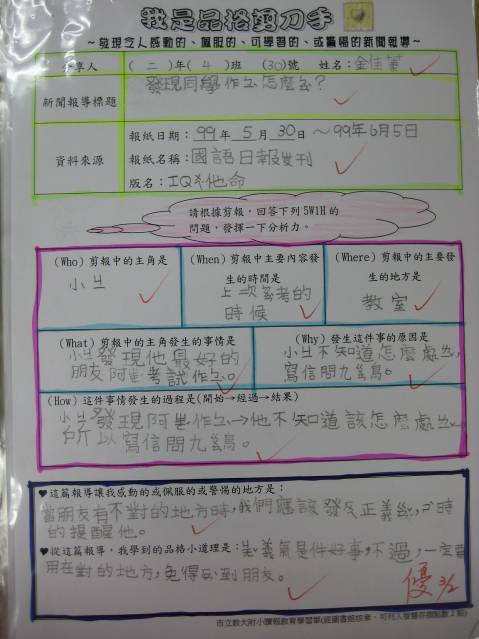 我是品格剪刀手
~發現令人感動的、佩服的、可學習的、或警惕的新聞報導~
分享人 (二)年(4)班 (30)號 姓名:金佳
新聞報導標題 發現同學作ㄅ怎麼ㄅ?
資料來源
報紙日期:99年5月30日~99年6月5日
報紙名稱:國語日報週刊
版名:IQ
請根據剪報,回答下列 5W1H 的
問題,發揮一下分析力。
(Who)剪報中的主角是
小ㄓ
(When)剪報中主要內容發
生的時間是
上次考的
時候
(Where)剪報中的主要發
生的地方是
教室
(What)剪報中的主角發生的事情是
小ㄓ發現他最好的
朋友阿考試作ㄅ。
(Why)發生這件事的原因是
小ㄓ不知道怎麼處
寫信問九
(How)這件事情發生的過程是(開始→經過→結果)
小ㄓ發現阿作ㄅ→他不知道該怎麼處
所以寫信問九
♥這篇報導讓我感動的或佩服的或警惕的地方是:
當朋友有不對的地方時,我們應該發正義,時
的提醒他。
♥從這篇報導,我學到的品格小道理是:
義氣是件好事,不過,一定要
用在對的地方,免得到朋友。
優 3/2